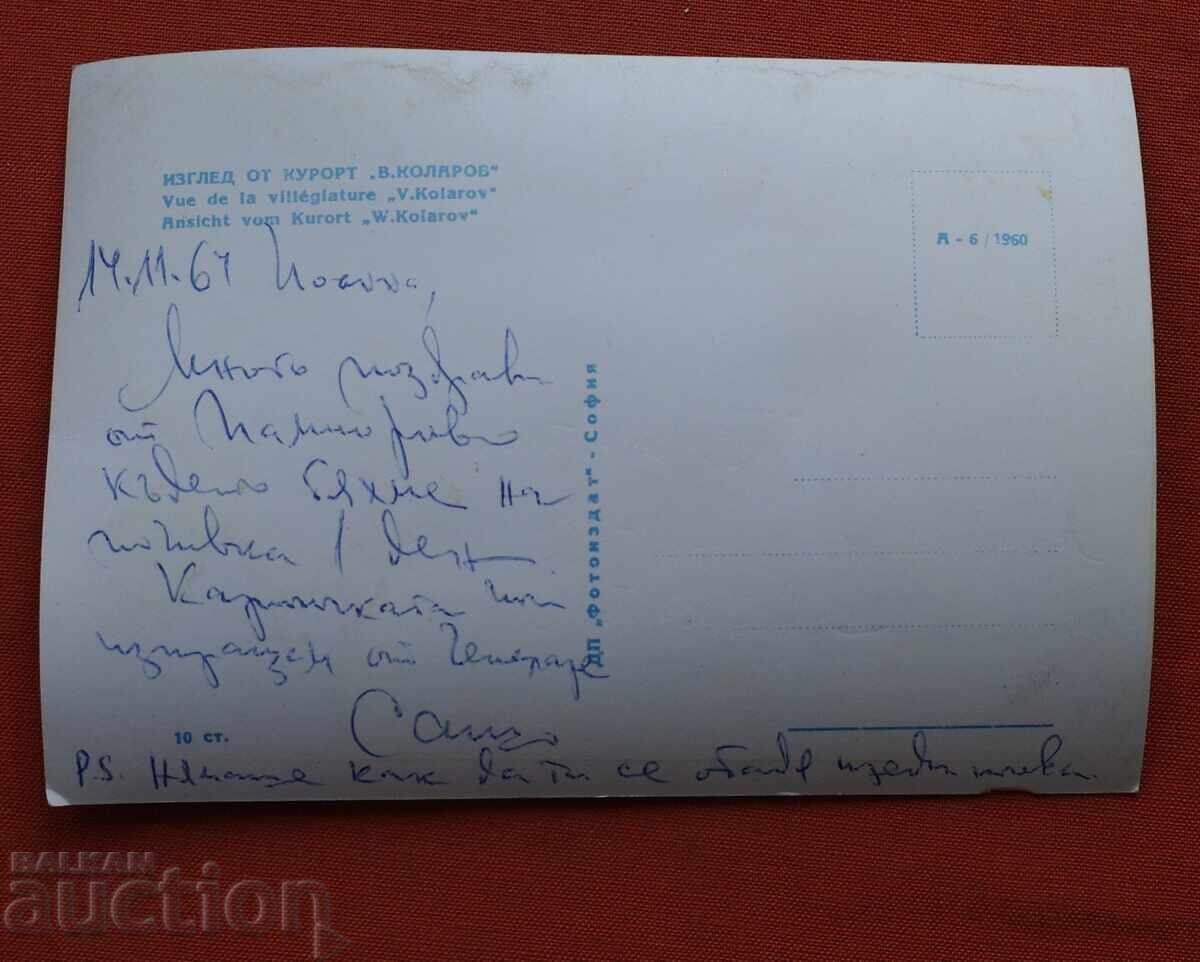 ИЗГЛЕД ОТ КУРОРТ „В.КОЛАРОВ"
Vue de la villégiature „V.Kolarov"
Ansicht vom Kurort „W.Kolarov"
А - 6 / 1960
14.11.61
Много поздрави
от Пампорово
където бяхме на
почивка 1 ден
Картичката ти
изпращам от
Сашо
10 ст.
P.S. Нямаше как да ти се обадя
ДП „Фотоиздат" - София
BALKAN
auction